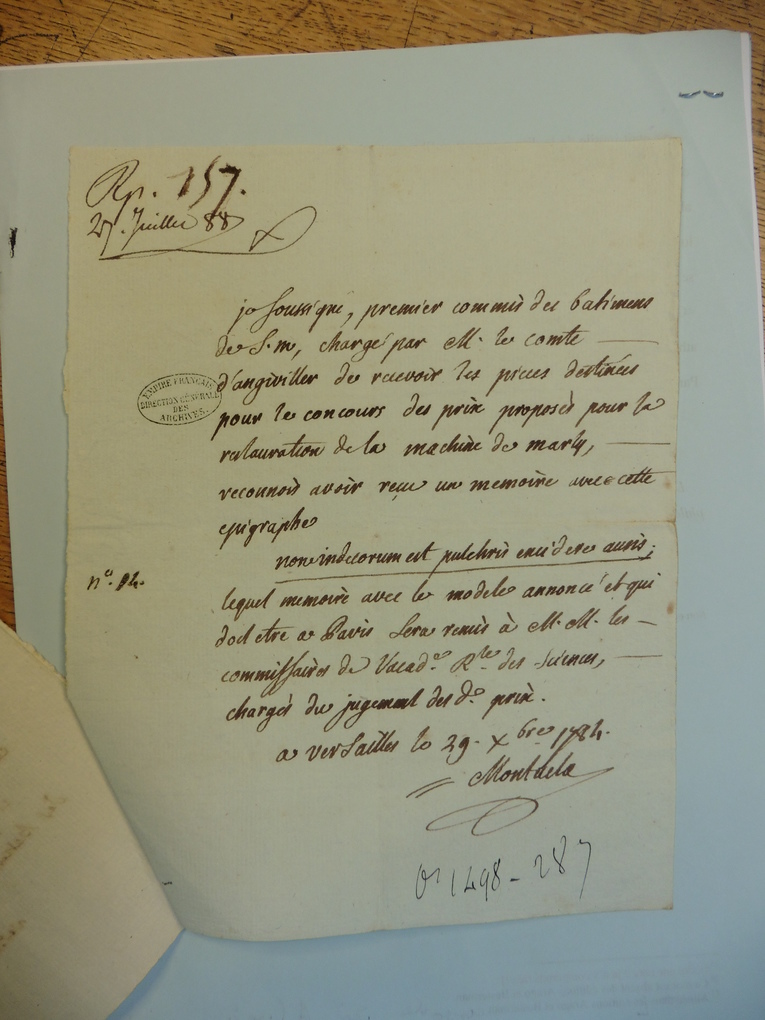 Rp. 157.
27. Juillet 88
je Soussigne, premier commis des batimens
de S. m, chargé par M. le comte
d'angiviller de recevoir les pieces destinées
EMPIRE FRANÇAIS
DIRECTION GÉNÉRALE
DES
ARCHIVES.
pour le concours des prix proposés pour la
restauration de la machine de marly,
reconnois avoir reçu un memoire avec cette
epigraphe
non indecorum est pulchris enidere ausis;
n°. 14.
lequel memoire avec le modele annoncé et qui
doit etre a Paris Sera remis à M. M. les
commissaires de l'acad.e R.le des Sciences,
chargés du jugement des d.s prix.
a verSailles le 29. Xbre 1784.
Montucla
O1 1498 - 287